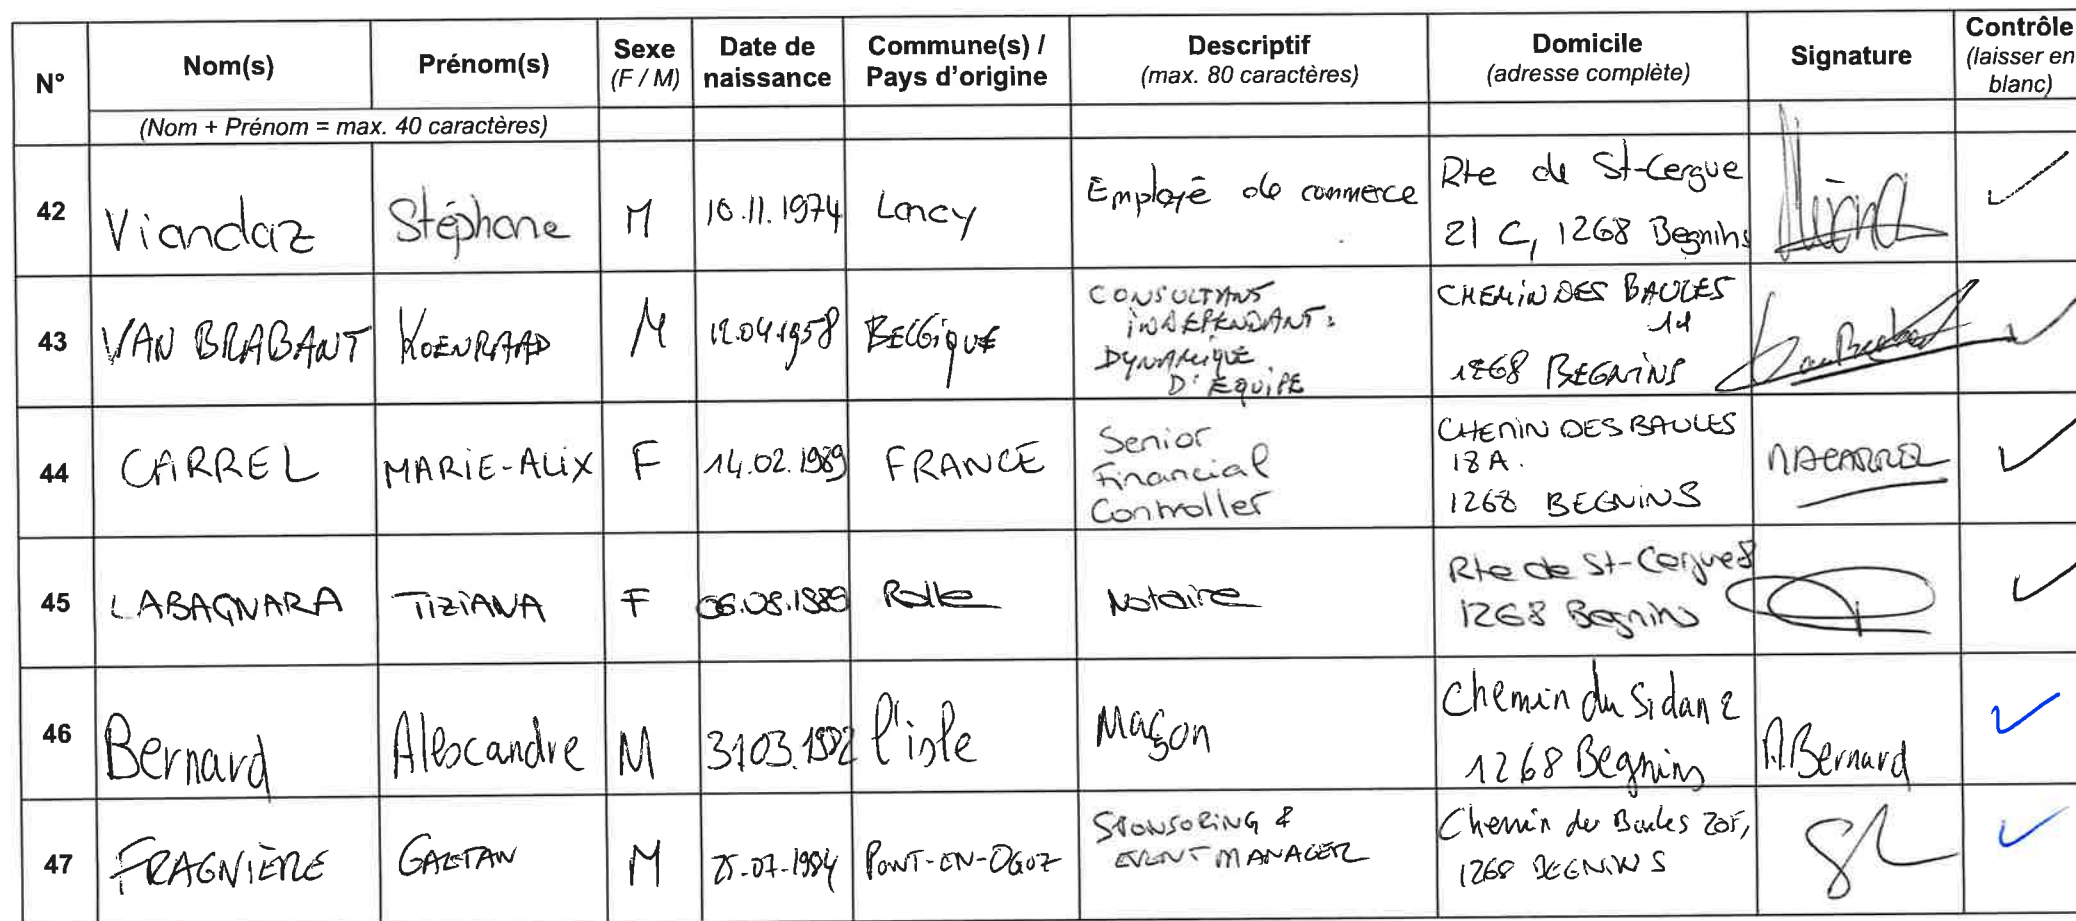 N° Nom(s) Prénom(s) Sexe (F / M) Date de naissance Commune(s) / Pays d'origine Descriptif (max. 80 caractères) Domicile (adresse complète) Signature Contrôle (laisser en blanc)
(Nom + Prénom = max. 40 caractères)
42 Viandaz Stéphane M 10.11.1974 Lancy Employé de commerce Rte de St-Cergue
21 C, 1268 Begnins
43 VAN BRABANT KOENRAAD M 12.04.1958 BELGIQUE CONSULTANT INDEPENDANT: DYNAMIQUE D'EQUIPE CHEMIN DES BAULES
1268 BEGNINS
44 CARREL MARIE-ALIX F 14.02.1989 FRANCE Senior Financial Controller CHEMIN DES BAULES
18A.
1268 BEGNINS
MACARREL
45 LABAGNARA TIZIANA F 06.08.1989 Rolle Notaire Rte de St-Cergue 8
1268 Begnins
46 Bernard Alexandre M 3103.1982 l'isle Maçon Chemin du Sidan 2
1268 Begnins
A.Bernard
47 FRAGNIÈRE GAETAN M 25.07.1984 PONT-EN-OGOZ SPONSORING & EVENT MANAGER Chemin des Baules 20F,
1268 BEGNINS